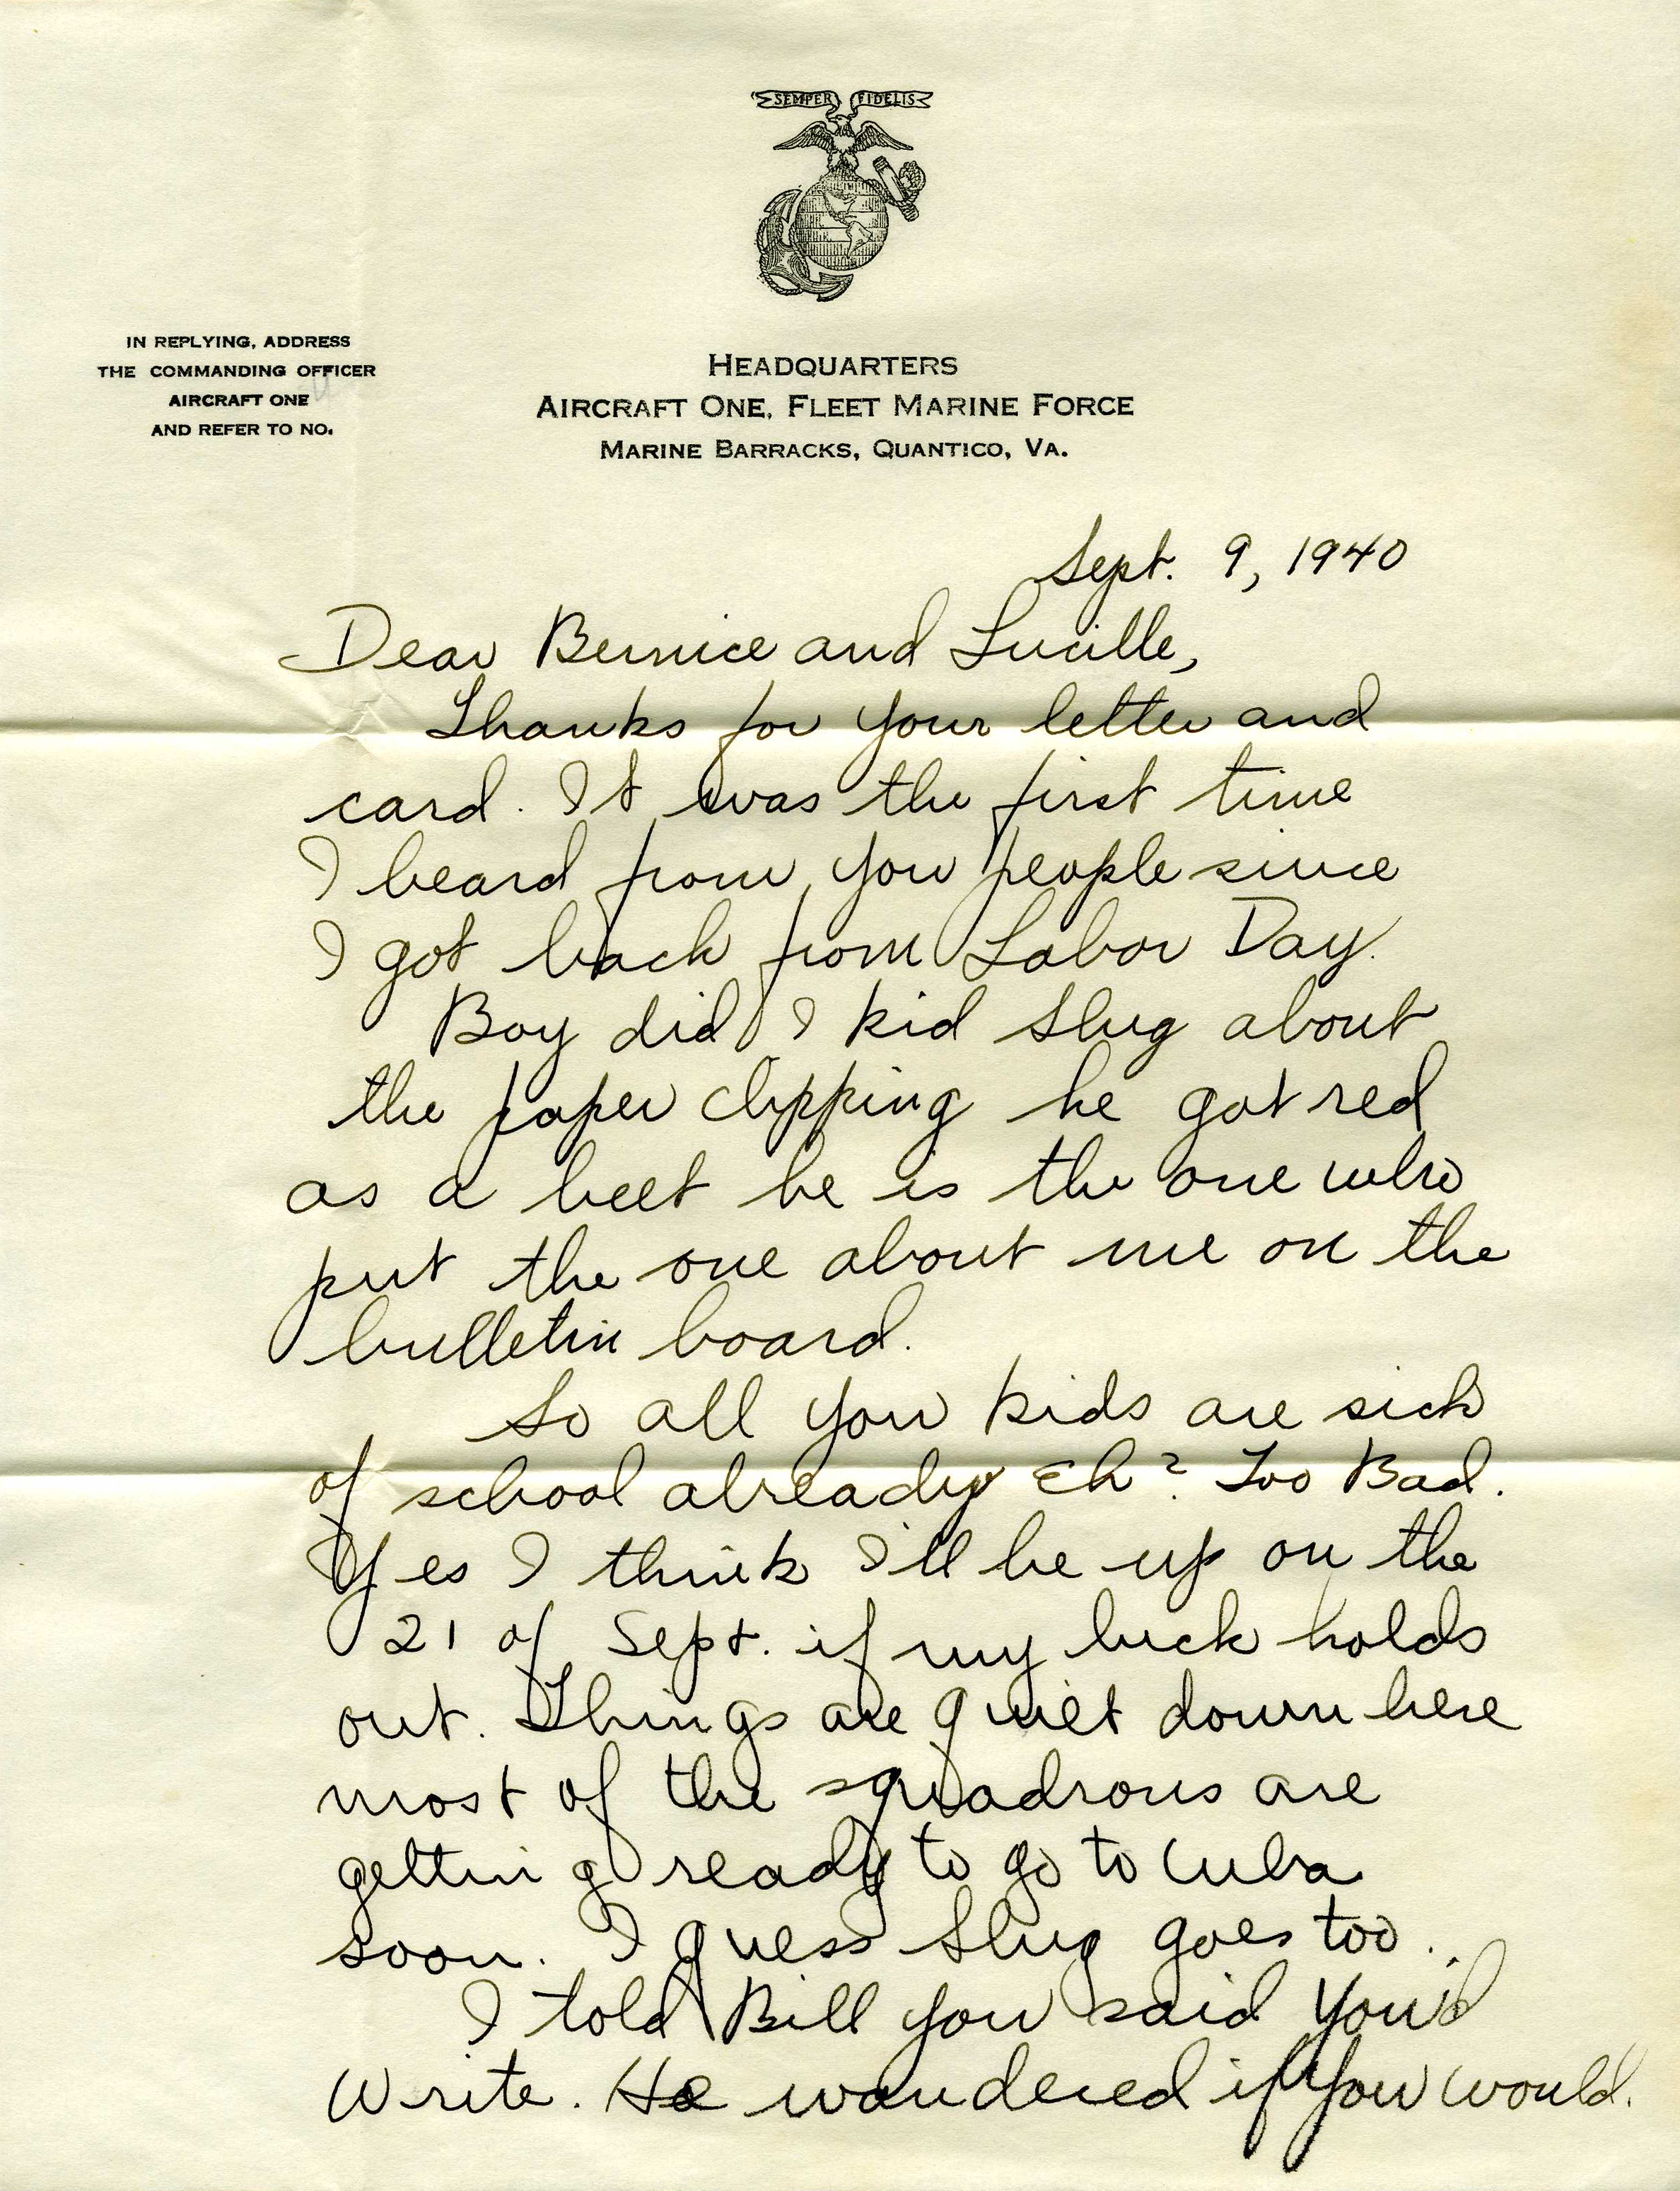 SEMPER FIDELIS
IN REPLYING, ADDRESS
THE COMMANDING OFFICER
AIRCRAFT ONE
AND REFER TO NO.
HEADQUARTERS
AIRCRAFT ONE, FLEET MARINE FORCE
MARINE BARRACKS, QUANTICO, VA.
Sept. 9, 1940
Dear Bernice and Lucille,
Thanks for your letter and
card. It was the first time
I heard from you people since
I got back from Labor Day.
Boy did I kid Slug about
the paper clipping he got red
as a beet he is the one who
put the one about me on the
bulletin board.
So all you kids are sick
of school already Eh? Too Bad.
Yes I think I'll be up on the
21 of Sept. if my luck holds
out. Things are quiet down here
most of the squadrons are
getting ready to go to Cuba
soon. I guess Slug goes too.
I told Bill you said you'd
write. He wondered if you would.